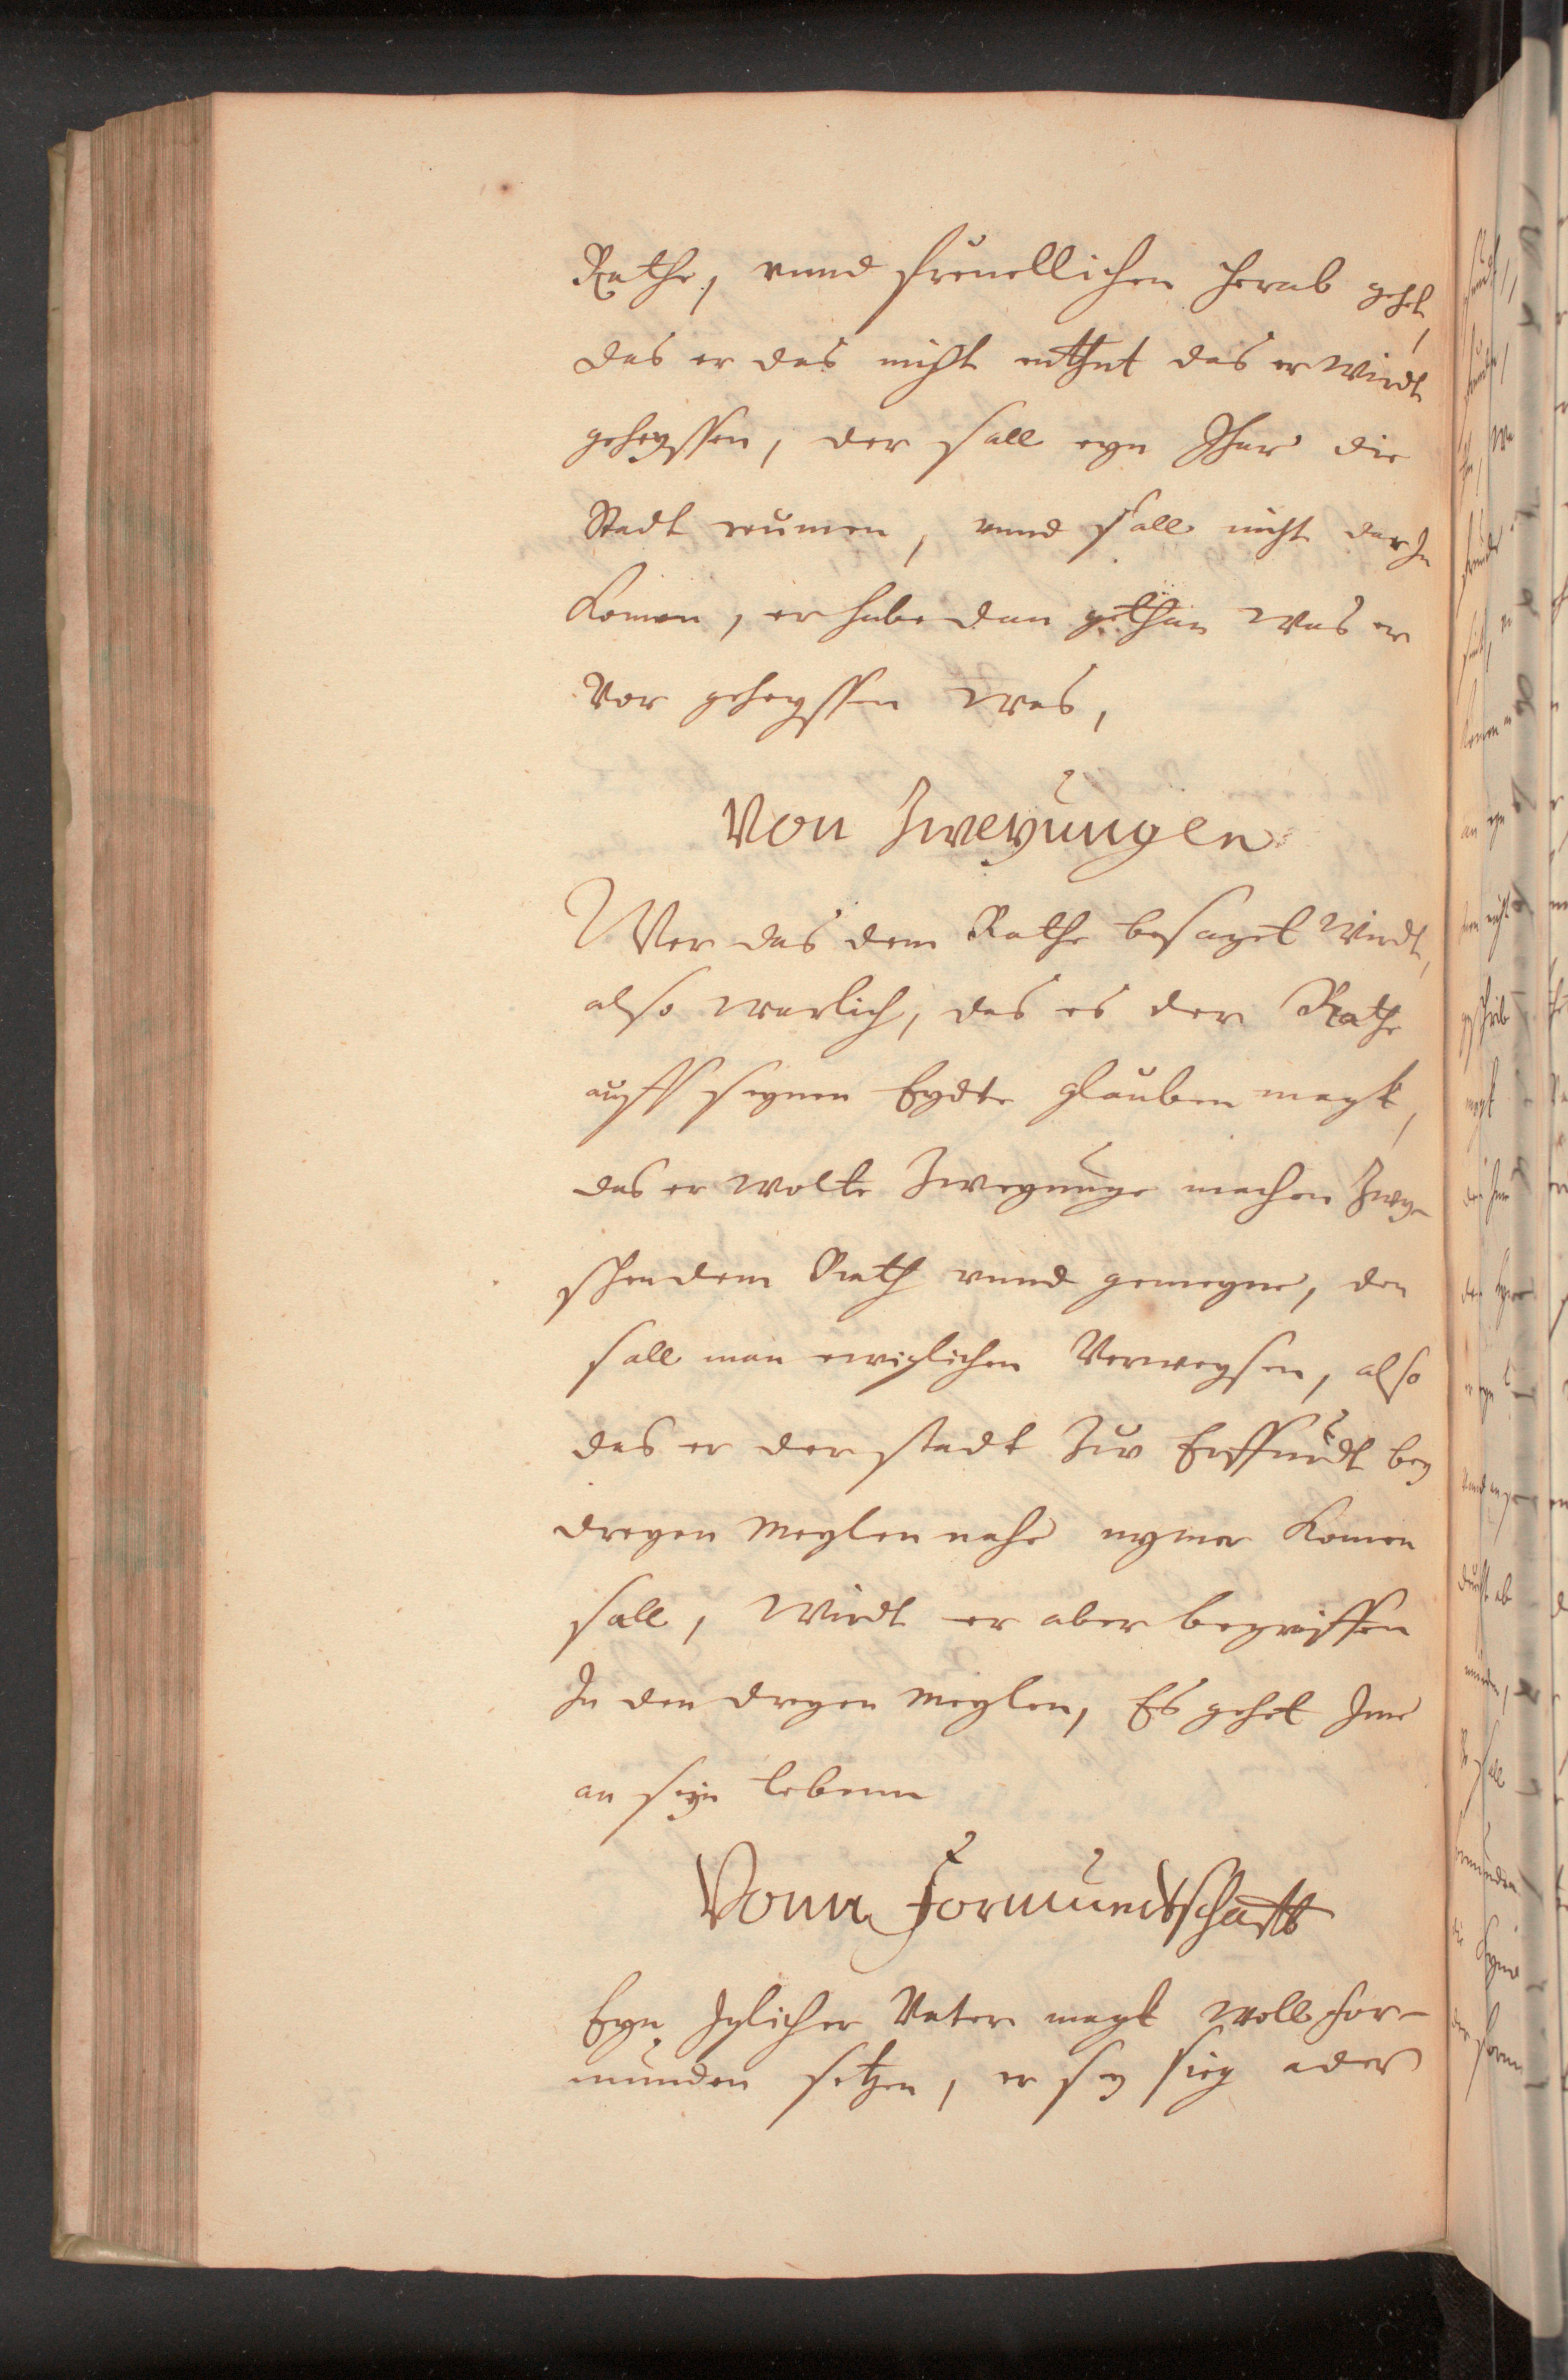 Rathe, vnnd freuellichen herab gehet,
das er das nicht enthut das er wirdt
geheyssen, der sall eyn Jhar die
Stadt reumen, vnnd sall nicht darIn
komen, er habe dan gethan was er
vor geheyssen was,
Von Zweyungen
Wer das dem Rathe besaget wirdt,
also warlich, das es der Rathe
auff seynen Eydte glauben magk,
das er wolte Zweyunge machen Zwy-
schen dem Rath vnnd gemeyne, den
sall man ewiglichen verweysen, also
das er der stadt Zur Erffurdt bey
dreyen Meylen nahe nymer komen
sall, wirdt er aber begriffen
In den dreyen meylen, Es gehet Ime
an seyn lebenn
Vonn Formundschafft
Eyn Iglicher Vater magk woll for-
munden setzen, er sey siey ader